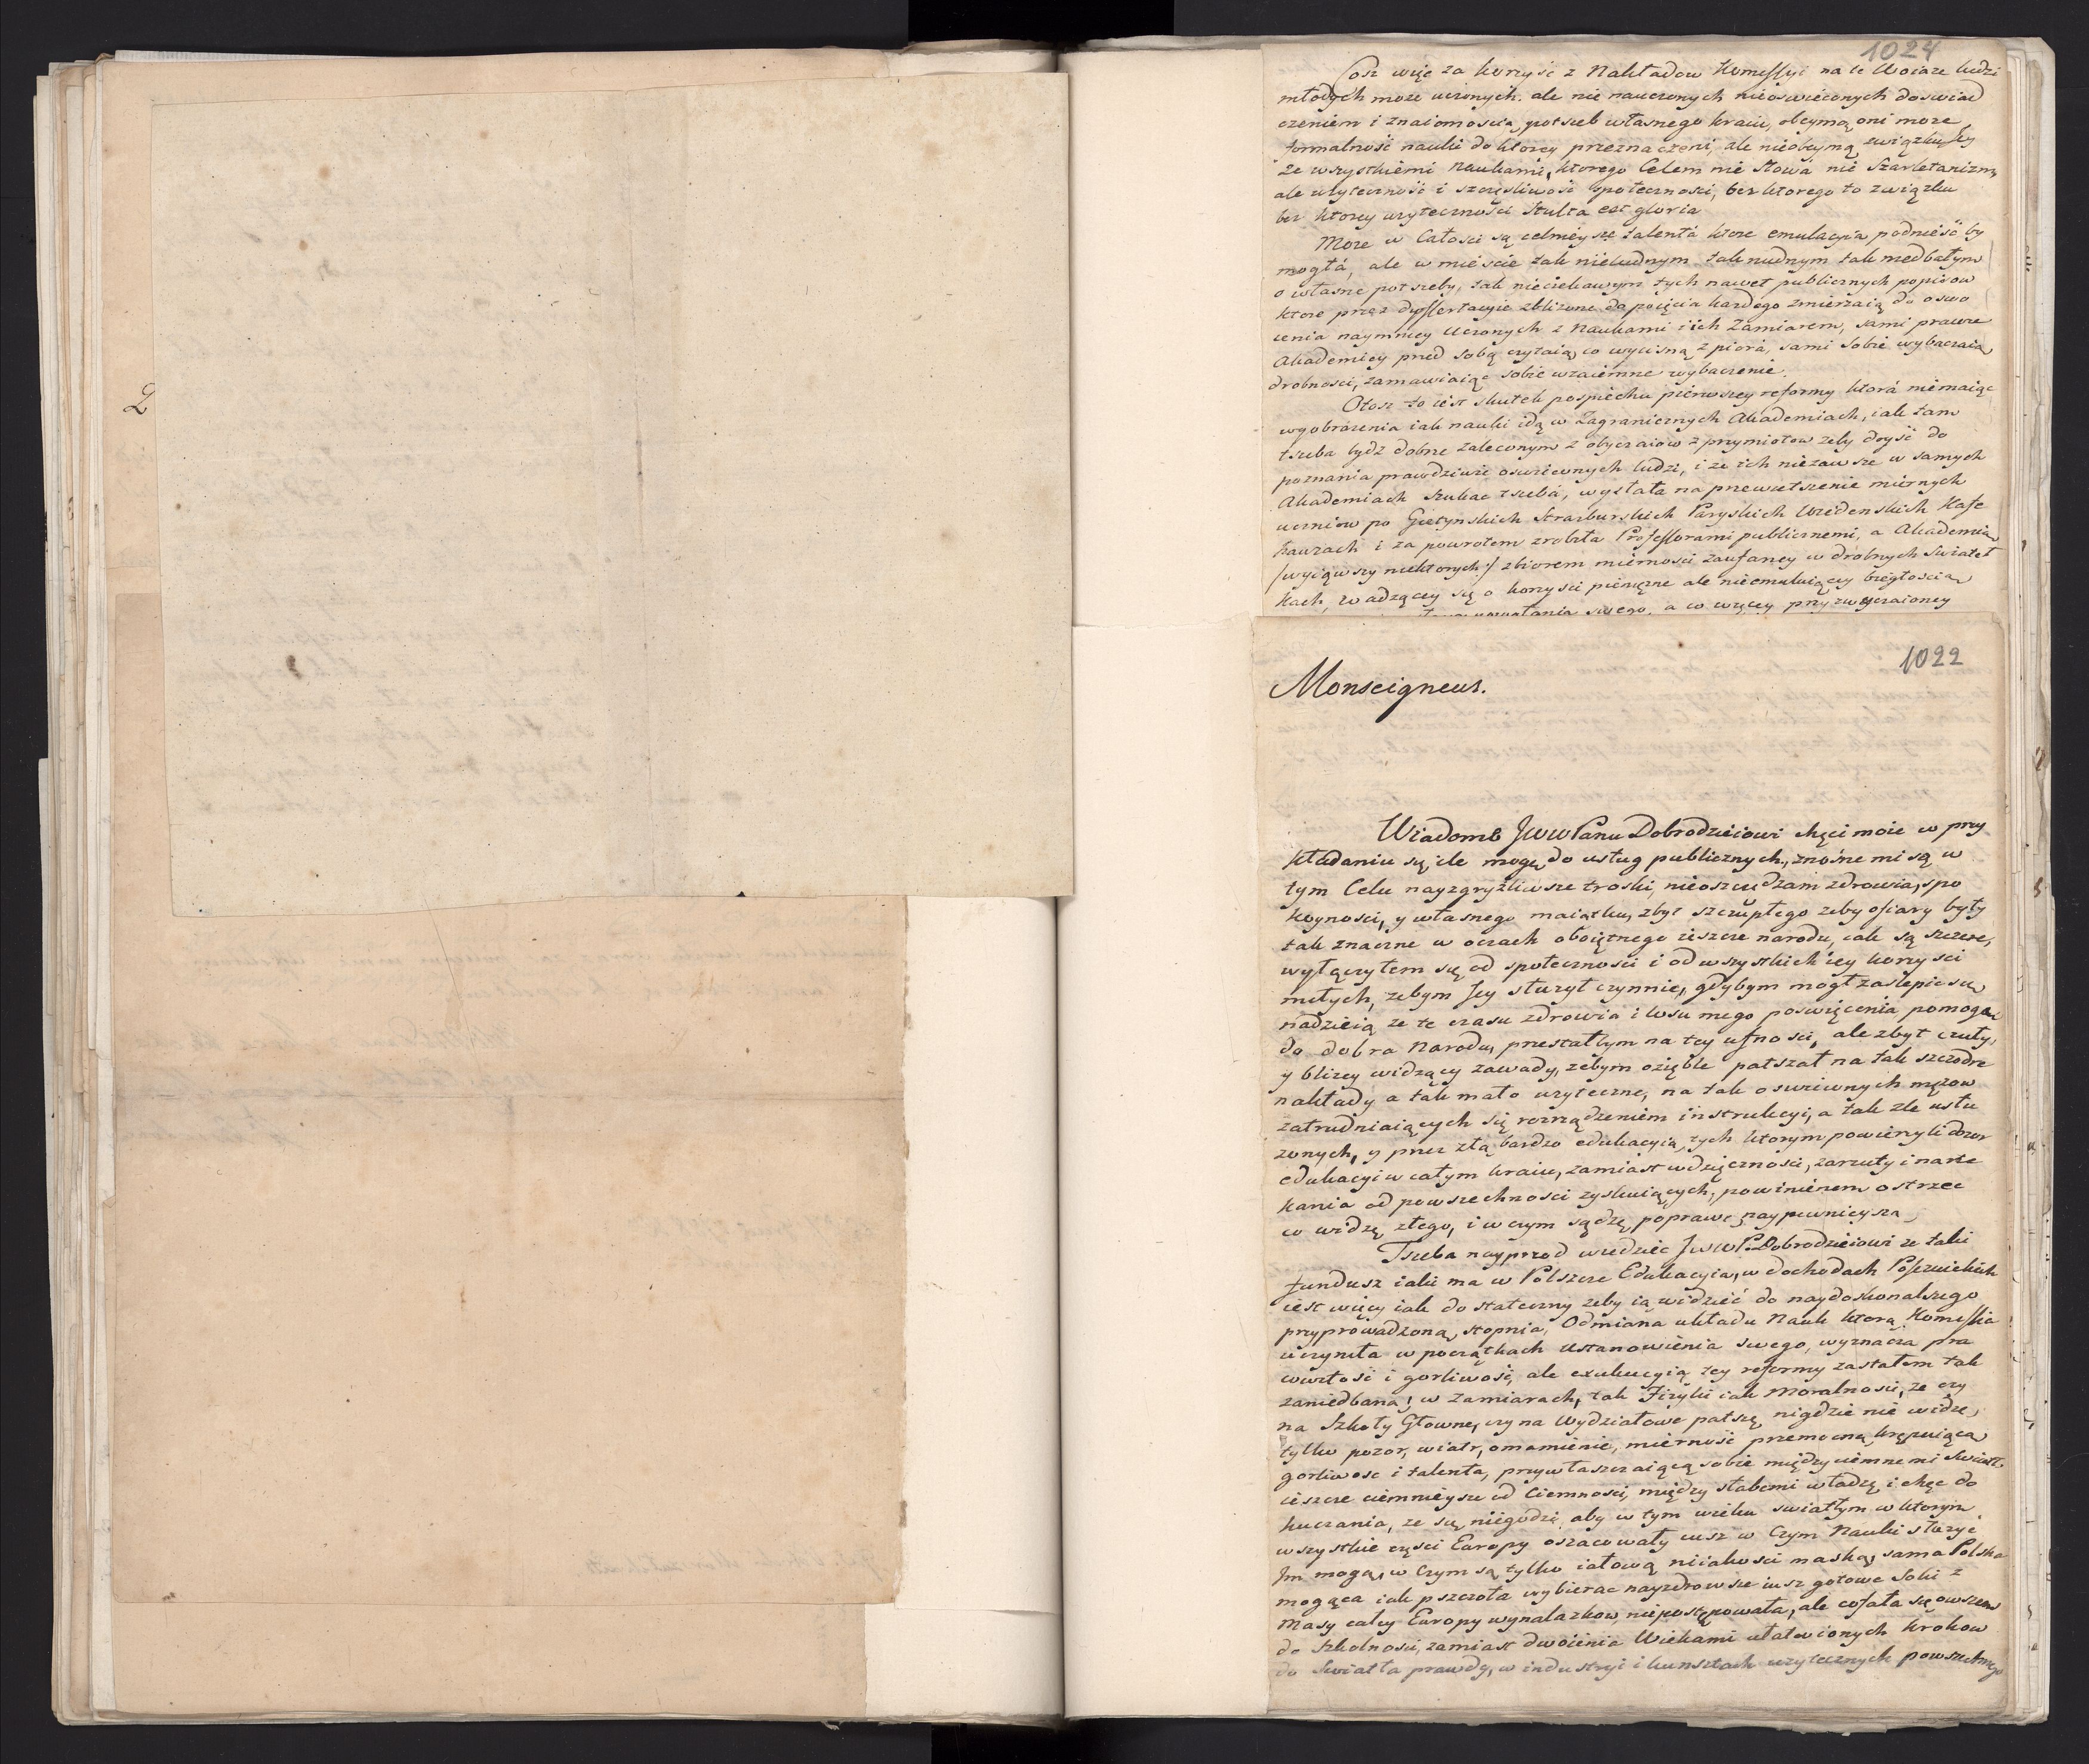 2
1024
Cosz więc za korzysc z Nakładow Komessyi na te Woiaze ludzi
młodych moze uczonych. ale nie nauczonych nieoswieconych doswiad
czeniem i znaiomoscią potrzeb własnego kraiu, obeymą oni moze
formalność nauki do ktorey przeznaczeni, ale nieobeymą związku Jey
ze wszystkiemi naukami, ktorego Celem nie słowa nie Szarletanizm,
ale uzyteczność i szczęsliwość społecznosci, bez ktorego to związku
bez ktorey uzyteczności Stulta est gloria
Moze w Całosci są celnieysze talenta ktore emulacyia podnieść by
mogła, ale w mieście tak nieludnym tak nudnym tak niedbałym
o własne potrzeby, tak nieciekawym tych nawet publicznych popisow
ktore przez dyssertacyie zblizone do poięcia kazdego zmierzaią do oswo
ienia naymniey Uczonych z Naukami i ich Zamiarem, sami prawie
Akademicy przed sobą czytaią co wycisną z piora, sami sobie wybaczaią
drobnosci, zamawiaiąc sobie wzaiemne wybaczenie.
Otosz to iest skutek pospiechu pierwszey reformy ktorá niemaiąc
wyobrozenia iak nauki idą w Zagranicznych Akademiach, iak tam
trzeba bydz dobrze zaleconym z obyczaiow z przymiotow zeby doyść do
poznania prawdziwie oswieconych ludzi, i ze ich niezawsze w samych
Akademiach szukac trzeba, wysłała na przewietrzenie miernych
uczniow po Gietynskich Strazburskich Paryskich Wiedenskich Kafe
hauzach i za powrotem zrobiła Professorami publicznemi, a Akademią
/wyiąwszy niektorych/ zbiorem miernosci zaufaney w drobnych Swiateł
kach, wadzącey się o korzysci pienięzne ale nieemuluiącey biegłoscią
swego, a co więcey przyzwyczaioney
1022
Monseigneur.
Wiadome JWW Panu Dobrodzieiowi chęci moie w przy
kładaniu się ile mogę do usług publicznych, znośne mi są w
tym Celu nayzgryzliwsze troski, nieoszczędzam zdrowia, spo
koynosci, y własnego maiątku, zbyt szczupłego zeby ofiary były
tak znaczne w oczach oboiętnego ieszcze narodu, iak są szczere,
wyłączyłem się od społecznosci i od wszystkich iey korzysci
miłych, zebym Jey słuzył czynnie, gdybym mogł zaslepic się
nadzieią ze te czasu zdrowia i Wsu mego poswięcenia pomogą
do dobra Narodu, przestałbym na tey ufnosci, ale zbyt czuły,
y blizey widzący zawady, zebym ozięble patrzał na tak szczodre
nakłady a tak mało uzyteczne, na tak oswieconych męzow
zatrudniaiących się rozrządzeniem instrukcyi, a tak zle usłu
zonych, y przez złą bardzo edukacyią tych ktorym powierzyli dozor
edukacyi w całym kraiu, zamiast wdzięcznosci, zarzuty i narze
kania od powszechnosci zyskuiących, powinienem ostrzec
co widzę złego, i w czym sądzę poprawę naypewnieyszą
Trzeba nayprzod wiedziec JWWP. Dobrodzieiowi ze taki
fundusz iaki ma w Polszcze Edukacyia, w dochodach Pojezuickich
iest więcy iak dostateczny zeby ią widzieć do naydoskonalszego
przyprowadzoną stopnia, Odmiana układu Nauk ktorą Komessia
uczyniła w początkach Ustanowienia swego, wyznacza pra
wość i gorliwość, ale exekucyią tey reformy zastałem tak
zaniedbaną, w zamiarach, tak Fizyki iak Moralnosci, ze czy
na Szkoły Głowne, czy na Wydziałowe patrzę, nigdzie nie widzę,
tylko pozor, wiatr, omamienie, mierność przemocną, krępuiącą
gorliwosc i talenta, przywłaszczaiącą sobie między ciemnemi swiatł
ieszcze ciemnieysze od Ciemnosci, między słabemi władzę, i chęc do
huczania, ze się niegodzi, aby w tym wieku swiatłym w ktorym
wszystkie częsci Europy oszacowały iusz w Czym Nauki słuzyc
Im mogą, w Czym są tylko iałową niiakosci maską, sama Polska
mogąca iak pszczoła wybierac nayzdrowsze iusz gotowe Soki z
Masy całey Europy wynalazkow, niepostępowała, ale cofała się owszem
do Szkolnosci, zamiast dwoienia Wiekami ułatwionych krokow
do Swiatła prawdy, w industryi i kunsztach uzytecznych powszechnego